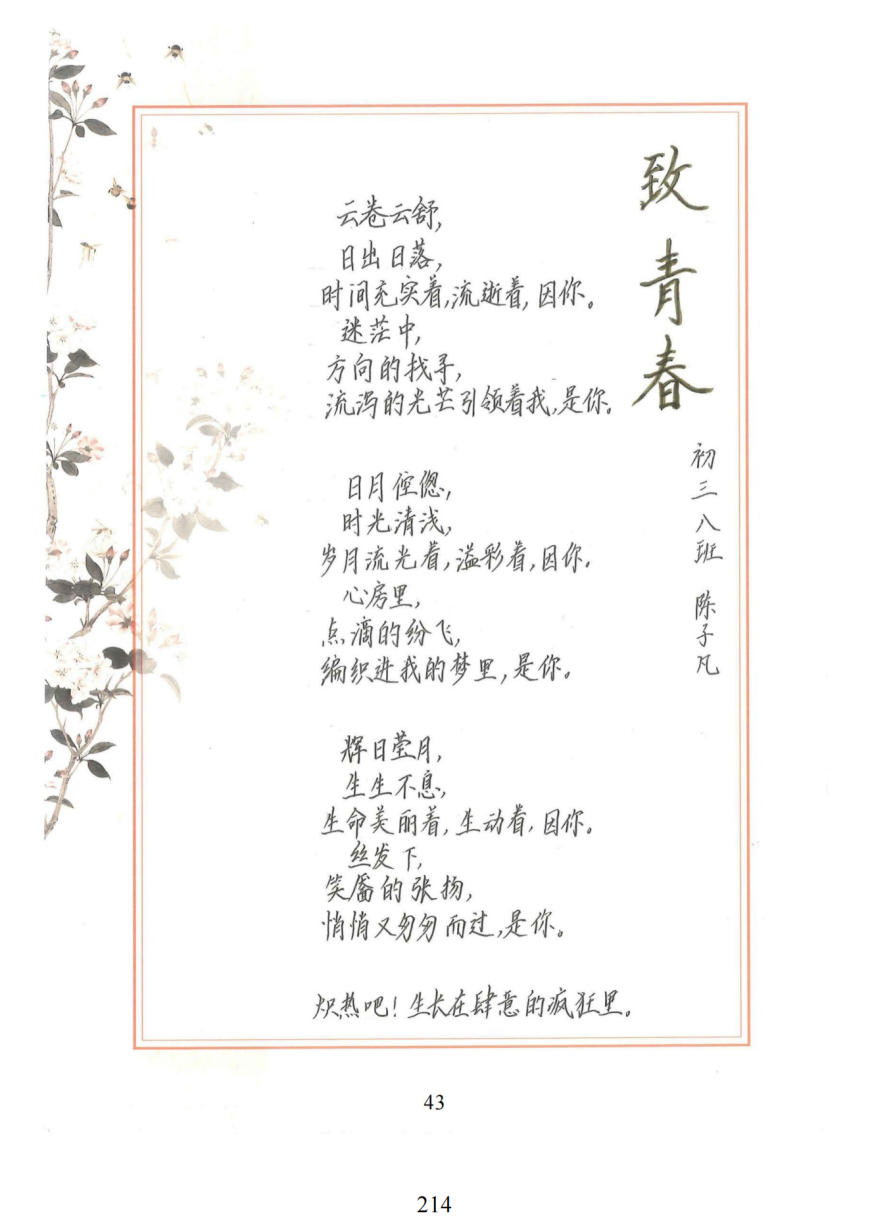 致青春
初三八班 陈子凡
云卷云舒,
日出日落,
时间充实着,流逝着,因你。
迷茫中,
方向的找寻,
流泻的光芒引领着我,是你。
日月倥偬,
时光清浅,
岁月流光着,溢彩着,因你.
心房里,
点滴的纷飞,
编织进我的梦里,是你。
辉日莹月,
生生不息,
生命美丽着,生动着,因你。
丝发下,
笑靥的张扬,
悄悄又匆匆而过,是你。
炽热吧!生长在肆意的疯狂里。
43
214